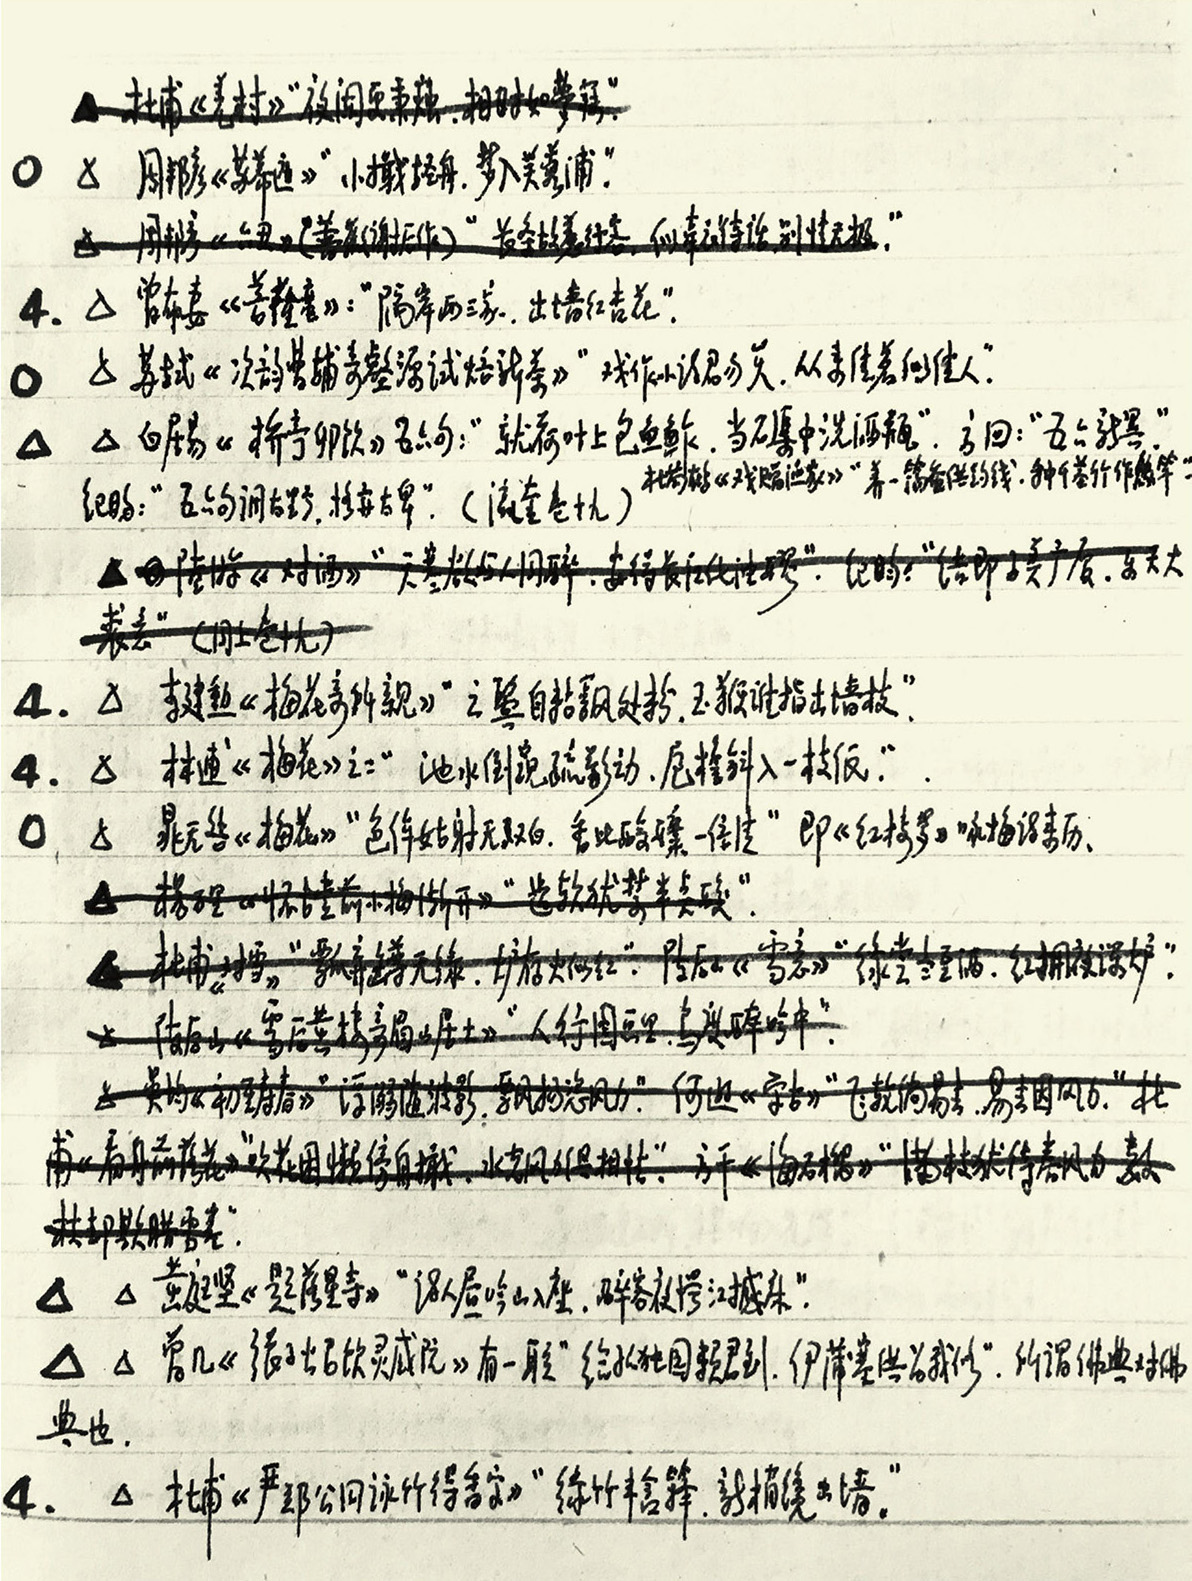 杜甫《羌村》“夜阑更秉烛，相对如梦寐”
周邦彦《苏幕遮》“小楫轻舟，梦入芙蓉浦”.
周邦彦《六丑》(蔷薇谢后作)“长条故惹行客，似牵衣待话，别情无极.”
4. △ 曾布妻《菩萨蛮》：“隔岸两三家，出墙红杏花”.
苏式《次韵曹辅寄壑源试焙新茶》“戏作小诗君勿笑，从来佳茗似佳人”.
△ △ 白居易《桥亭卯饮》五六句：“就荷叶上包鱼鲊，当石渠中洗酒瓶”. 方回：“五六新异.”
杜荀鹤《戏赠渔家》“养一箔蚕供钓线，种千茎竹作渔竿”
纪昀：“五六句调古野，格亦古卑”. (瀛奎卷十九)
陆游《对酒》“天寒欲与人同醉，安得长江化浊醪”. 纪昀：“结即子美广厦，乐天大
裘意”(同上卷十九)
4. △ 李建勋《梅花寄所亲》“云鬓自粘飘处粉，玉鞭谁指出墙枝”.
4. △ 林逋《梅花》之二“池水倒窥疏影动，屋檐斜入一枝低.”
晁无咎《梅花》“色侔姑射无双白，香比酴醾一倍清” 即《红楼梦》咏梅诗来历.
杨万里《怀古堂前小梅渐开》“齿软犹禁半点酸”.
杜甫《对雪》“瓢弃樽无绿，炉存火似红”. 陆后山《雪意》“绿尝冬至酒，红拥夜深炉”.
陈后山《雪后黄楼寄眉山居士》“人行图画里，鸟度醉吟中”.
吴均《初至寿春》“浮溺随波影，飘扬恣风力”. 何逊《学古》“飞轶倘易去，易去因风力.” 杜
甫《看舟前落花》“吹花困懒停舟楫，水光风力俱相怯”. 方干《海石榴》“满枝犹待春风力，数
朵却欺腊雪寒”.
△ △ 黄庭坚《题落星寺》“诗人昼吟山入座，醉客夜愕江撼床”.
△ △ 曾几《张子公召饮灵感院》有一联“给孤独园赖君到，伊蒲塞供为我修”. 所谓佛典对佛
典也.
4. △ 杜甫《严郑公同咏竹得香字》“绿竹半含箨，新梢才出墙.”